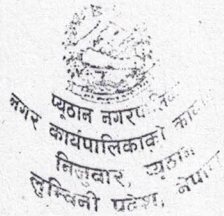 प्यूठान नगरपालिका
नगर कार्यपालिकाको
बिजुवार, प्यूठान
लुम्बिनी प्रदेश, नेपाल